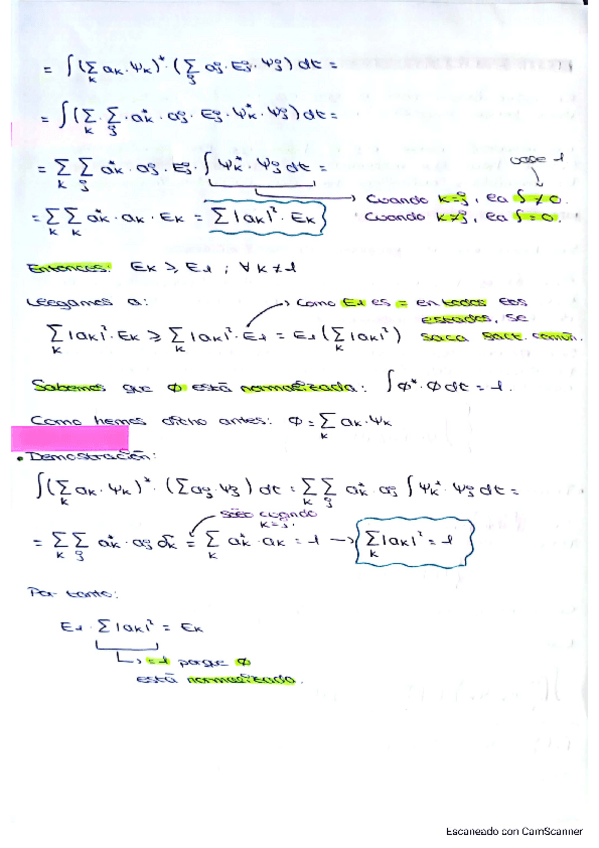 = ∫(∑ₖ aₖ·Ψₖ)* · (∑ⱼ aⱼ·Eⱼ·Ψⱼ) dτ =
= ∫(∑ₖ ∑ⱼ aₖ*·aⱼ·Eⱼ·Ψₖ*·Ψⱼ) dτ =
vale 1
= ∑ₖ ∑ⱼ aₖ*·aⱼ·Eⱼ·∫Ψₖ*·Ψⱼ dτ =
Cuando k=j, la ∫ ≠ 0.
= ∑ₖ ∑ₖ aₖ*·aₖ·Eₖ = ∑ₖ |aₖ|²·Eₖ
Cuando k≠j, la ∫ = 0.
Entonces: Eₖ ≥ E₁ ; ∀ k ≠ 1
Llegamos a:
Como E₁ es = en todos los estados, se saca fact. común.
∑ₖ |aₖ|²·Eₖ ≥ ∑ₖ |aₖ|²·E₁ = E₁(∑ₖ |aₖ|²)
Sabemos que Φ está normalizada: ∫Φ*·Φ dτ = 1.
Como hemos dicho antes: Φ = ∑ₖ aₖ·Ψₖ
• Demostración:
∫(∑ₖ aₖ·Ψₖ)* · (∑ aⱼ·Ψⱼ) dτ = ∑ₖ ∑ⱼ aₖ*·aⱼ ∫Ψₖ*·Ψⱼ dτ =
sólo cuando k=j.
= ∑ₖ ∑ⱼ aₖ*·aⱼ δₖ = ∑ₖ aₖ*·aₖ = 1 → ∑ₖ |aₖ|² = 1
Por tanto:
E₁·∑|aₖ|² = Eₖ
=1 porque Φ
está normalizada.
Escaneado con CamScanner